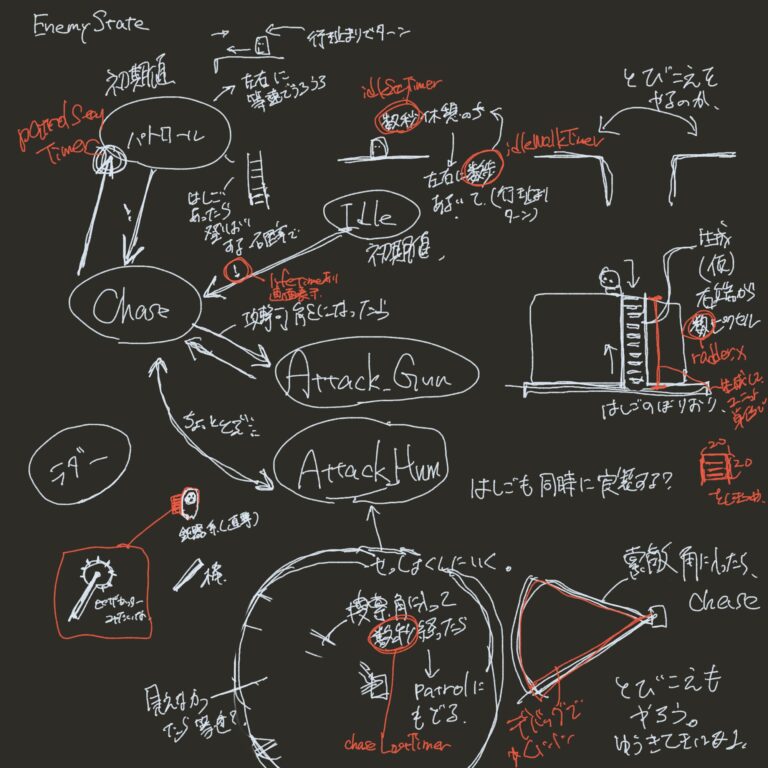 EnemyState
行き止まりでターン
初期値
左右に
等速でうろうろ
パトロール
Timer
はしご
あったら
登ったり
する
確率で
idleSecTimer
数秒 休憩のち
idleWalkTimer
左右に 数歩
あるいて、(行き止まり
ターン)
とびこえを
やるのか、
Idle
初期値、
!
LifeTimeあり
画面表示
Chase
攻撃可能になったら
Attack_Gun
ちょっととくべつに
Attack_Hum
ラダー
鈍器系(直専)
棒
生成
(仮)
右端から
数ピクセル
radder.x
はしごのぼりおり、
はしごも同時に実装する?
20
20
せっしょくしにいく。
捜索角に入って
数秒経ったら
patrolに
もどる。
chaseLostTimer
見えなかっ
たら等速?
索敵角に入ったら、
chase
デバッグで
とびこえも
やろう。